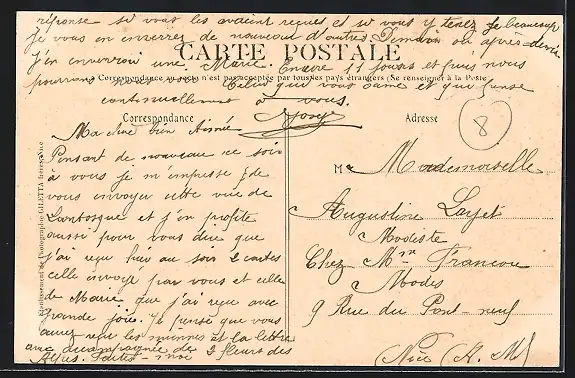 réponse si vous les avaient reçues et si vous y tenez je beaucoup
je vous en enverrez de nouveau d'autres. Demain ou après-demain
CARTE POSTALE
j'en enverrai une Marie. Encore 15 jours et puis nous
La Correspondance au recto n'est pas acceptée par tous les pays étrangers (Se renseigner à la Poste
pourrons nous voir. Celui qui vous aime et qui pense
continuellement à vous.
Correspondance
Adresse
8
Ma chère bien Aimée
Pensant de nouveau ce soir
à vous je m'empresse de
vous envoyer cette vue de
Lantosque et j'en profite
aussi pour vous dire que
j'ai reçu hier au soir 2 cartes
celle envoyé par vous et celle
de Marie que j'ai reçu avec
grande joie. Je pense que vous
aurez reçu les miennes et la lettre
avec accompagnée de 2 fleurs des
Alpes. Faites-moi
M Mademoiselle
Augustine Layet
Modiste
Chez Mme Francou
Modes
9 Rue du Pont-neuf
Nice (A. M)
Etablissement de Photographie GILETTA